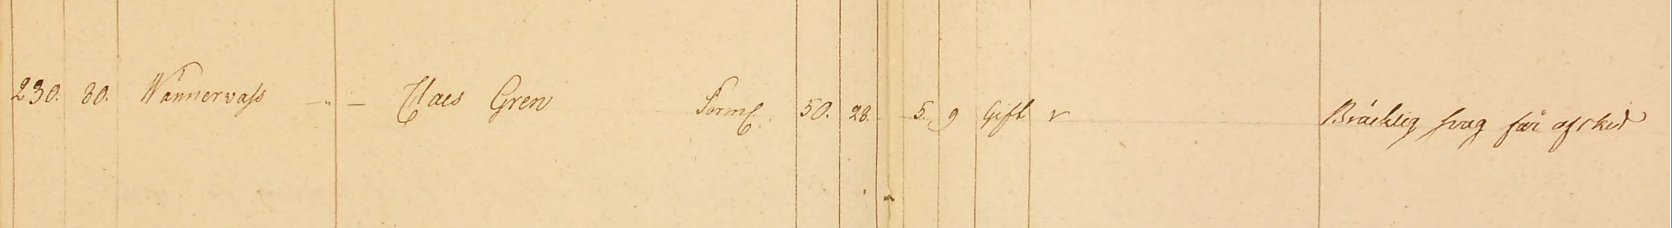 230. 80. Wännervass - - Claes Gren Sörml. 50. 28. 5. 9 Gift v Bräcklig svag får afsked